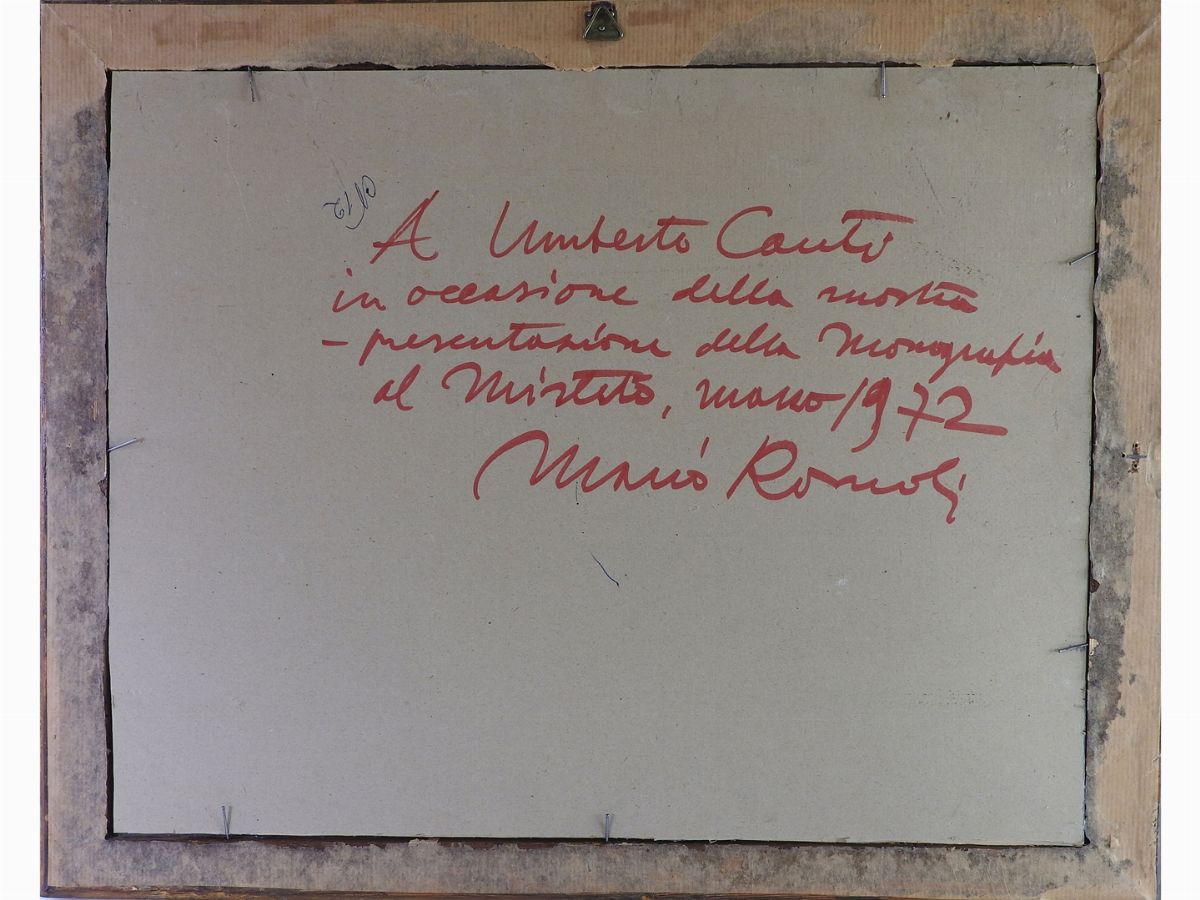 A Umberto Cantù
in occasione della mostra
- presentazione della Monografia
al Mistero, marzo 1972
Mario Romoli
N 12